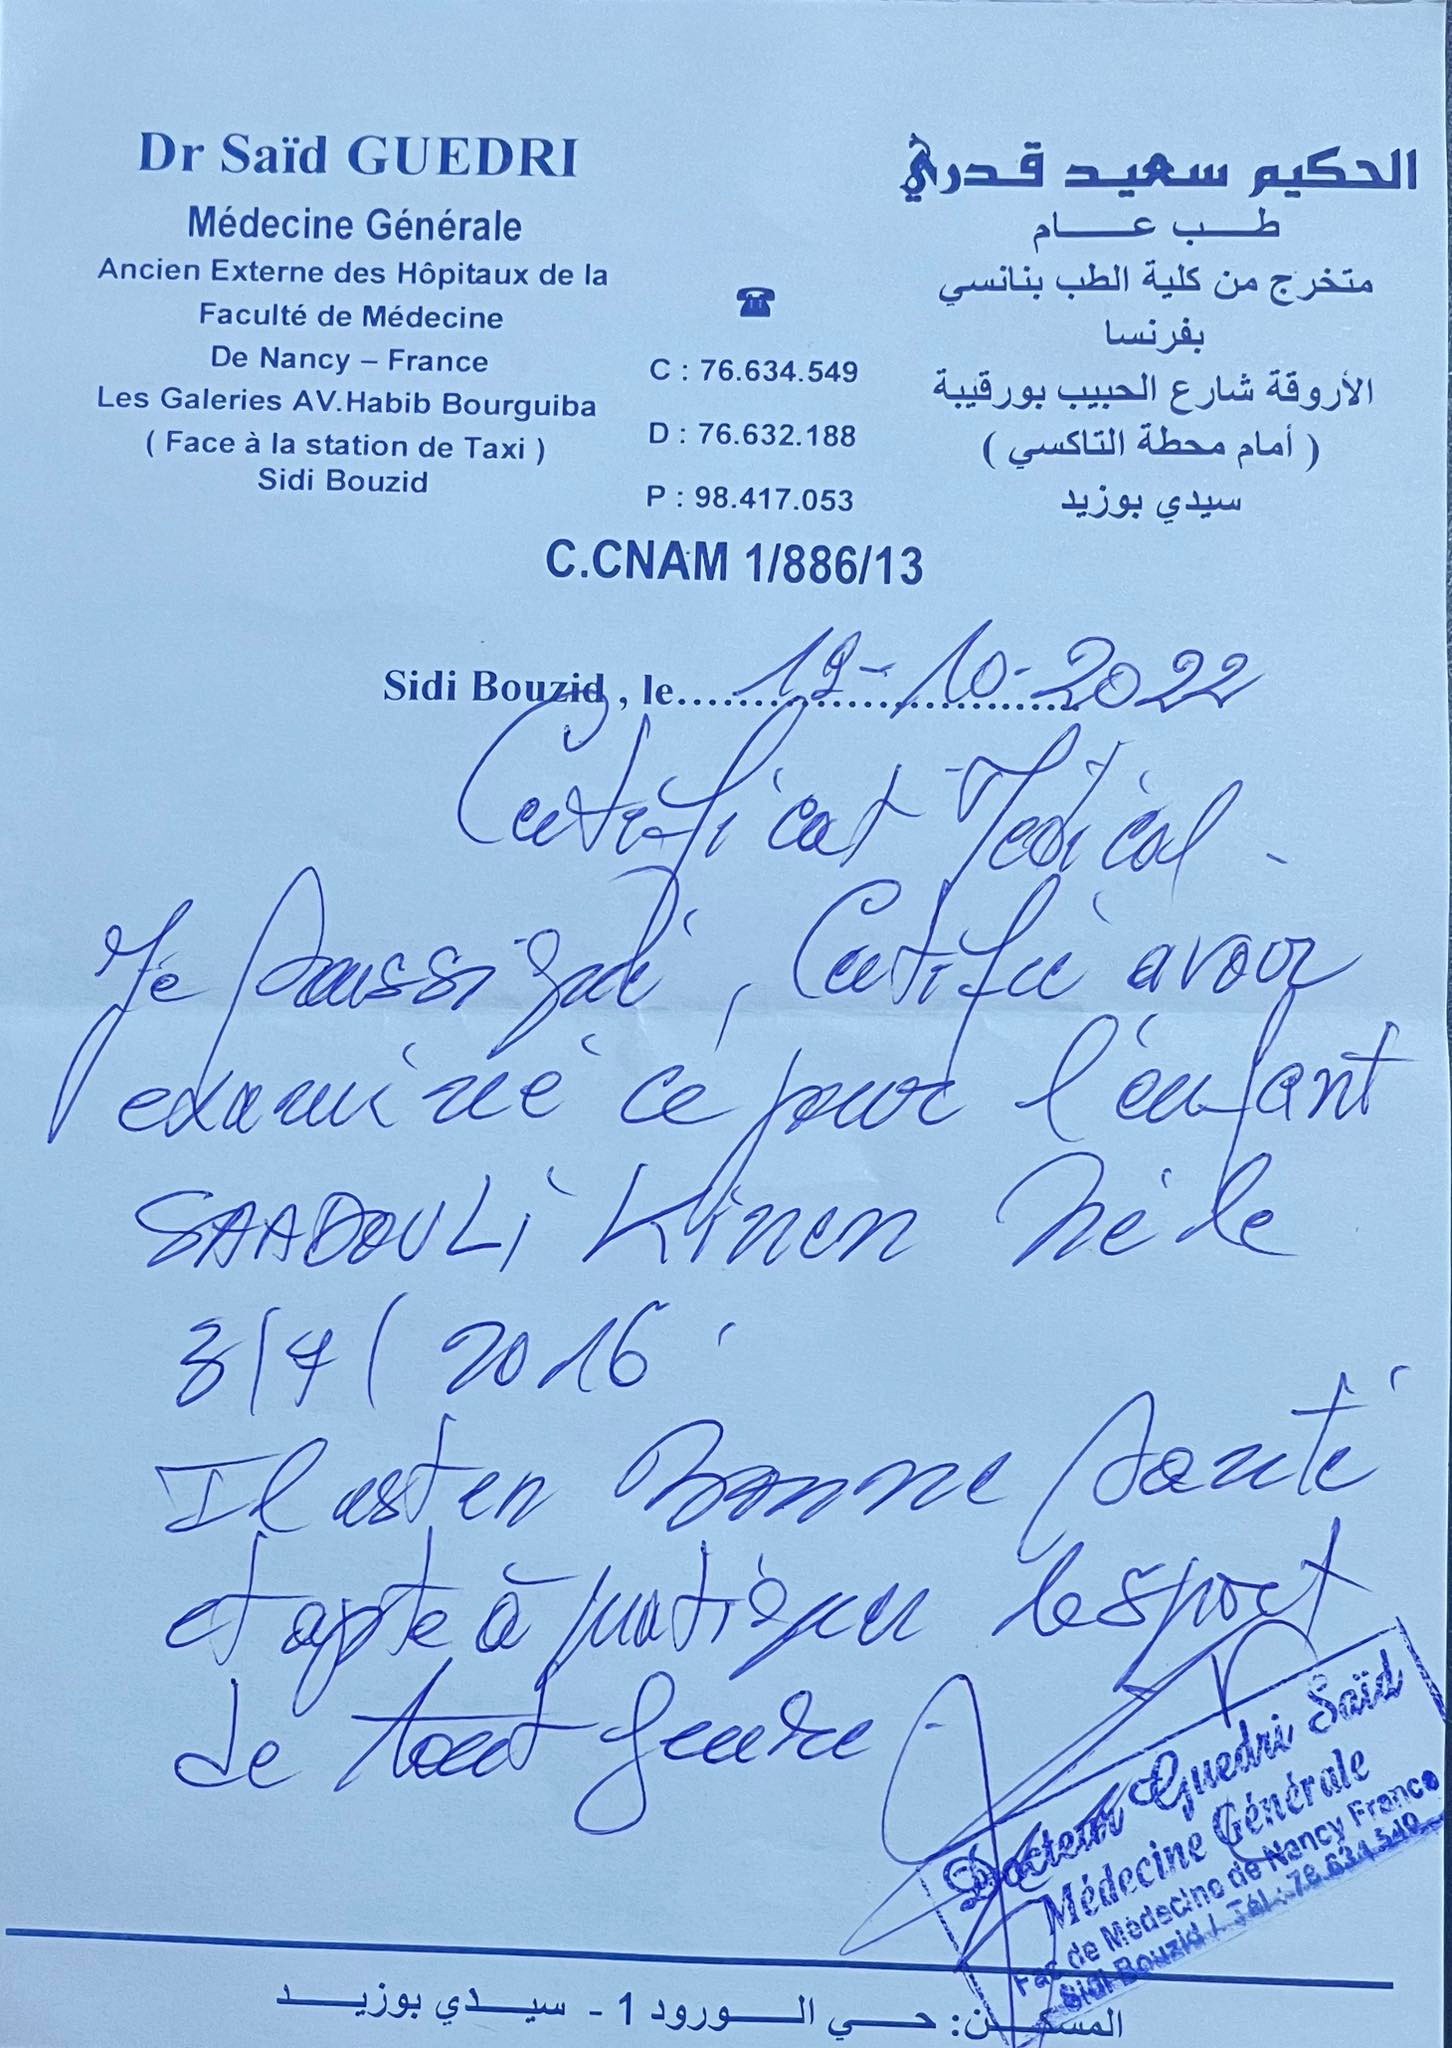 Dr Saïd GUEDRI
Médecine Générale
Ancien Externe des Hôpitaux de la
Faculté de Médecine
De Nancy – France
Les Galeries AV.Habib Bourguiba
( Face à la station de Taxi )
Sidi Bouzid
☎
C : 76.634.549
D : 76.632.188
P : 98.417.053
الحكيم سعيد قدري
طب عام
متخرج من كلية الطب بنانسي
بفرنسا
الأروقة شارع الحبيب بورقيبة
( أمام محطة التاكسي )
سيدي بوزيد
C.CNAM 1/886/13
Sidi Bouzid , le 19-10-2022
Certificat Médical
Je soussigné, Certifie avoir
examiné ce jour l'enfant
SAADOULI Kinen Né le
3/4/2016
Il est en Bonne santé
et apte à pratiquer le sport
de tout genre
Docteur Guedri Saïd
Médecine Générale
Fac de Médecine de Nancy France
Sidi Bouzid / Tél : 76.634.549
المسكن: حي الورود 1 - سيدي بوزيد